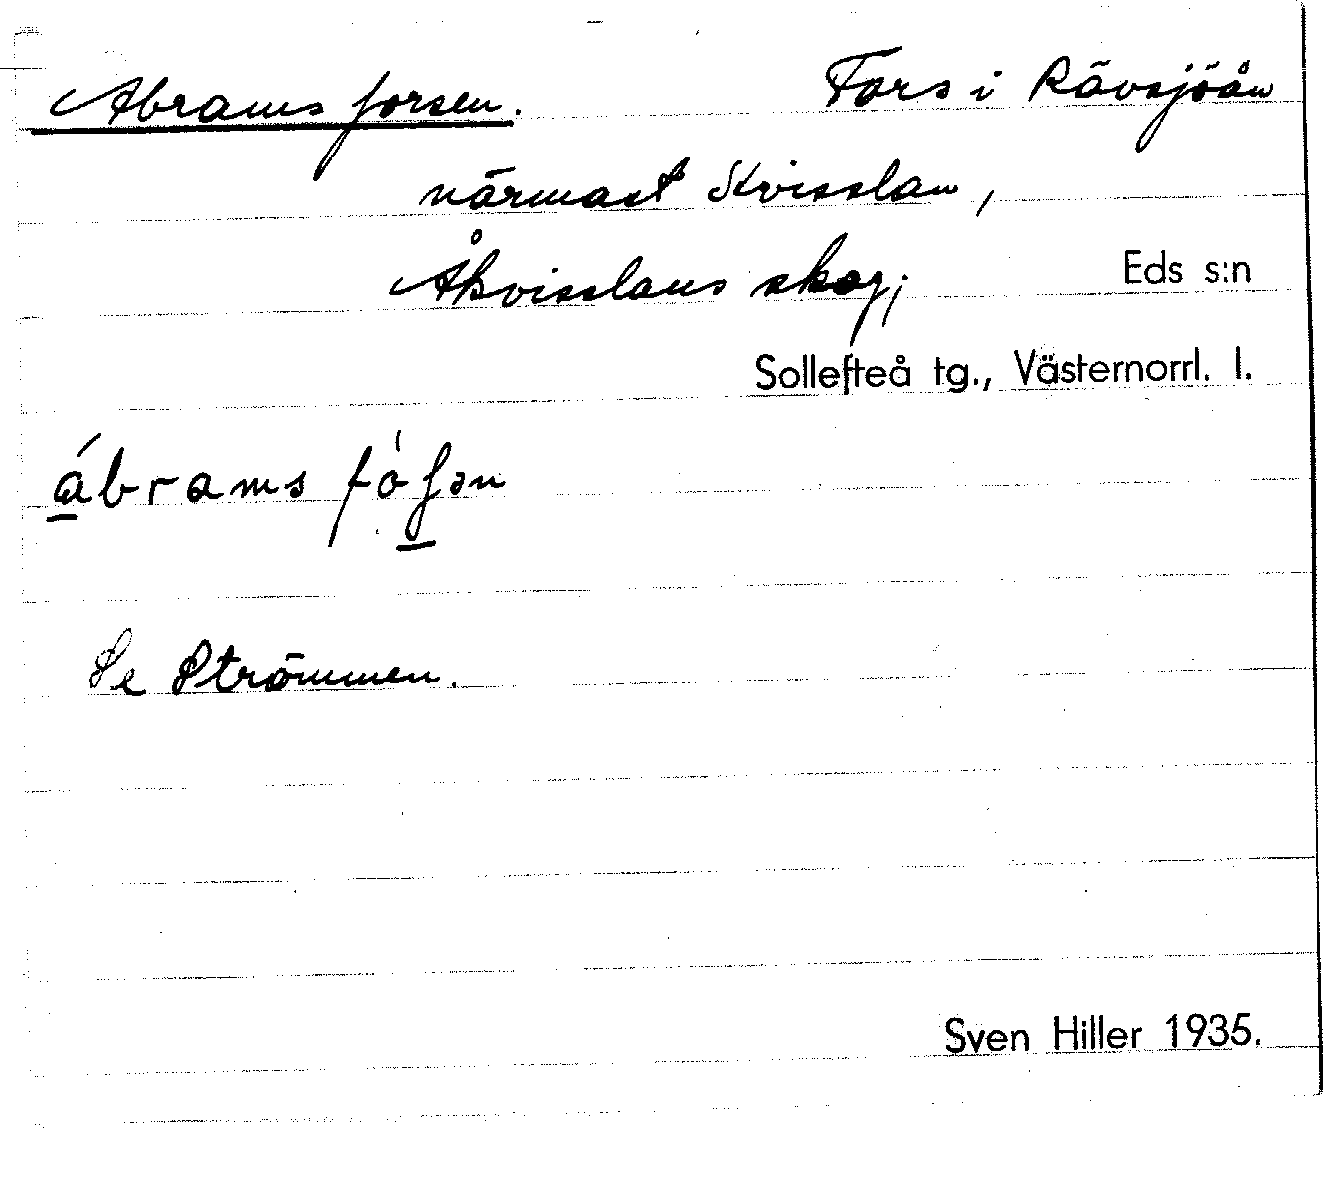 Abramsforsen. Fors i Rävsjöån
närmast Kvisslan,
Åkvisslans skog; Eds s:n
Sollefteå tg., Västernorrl. l.
ábrams fóʃən
Se Strömmen.
Sven Hiller 1935.